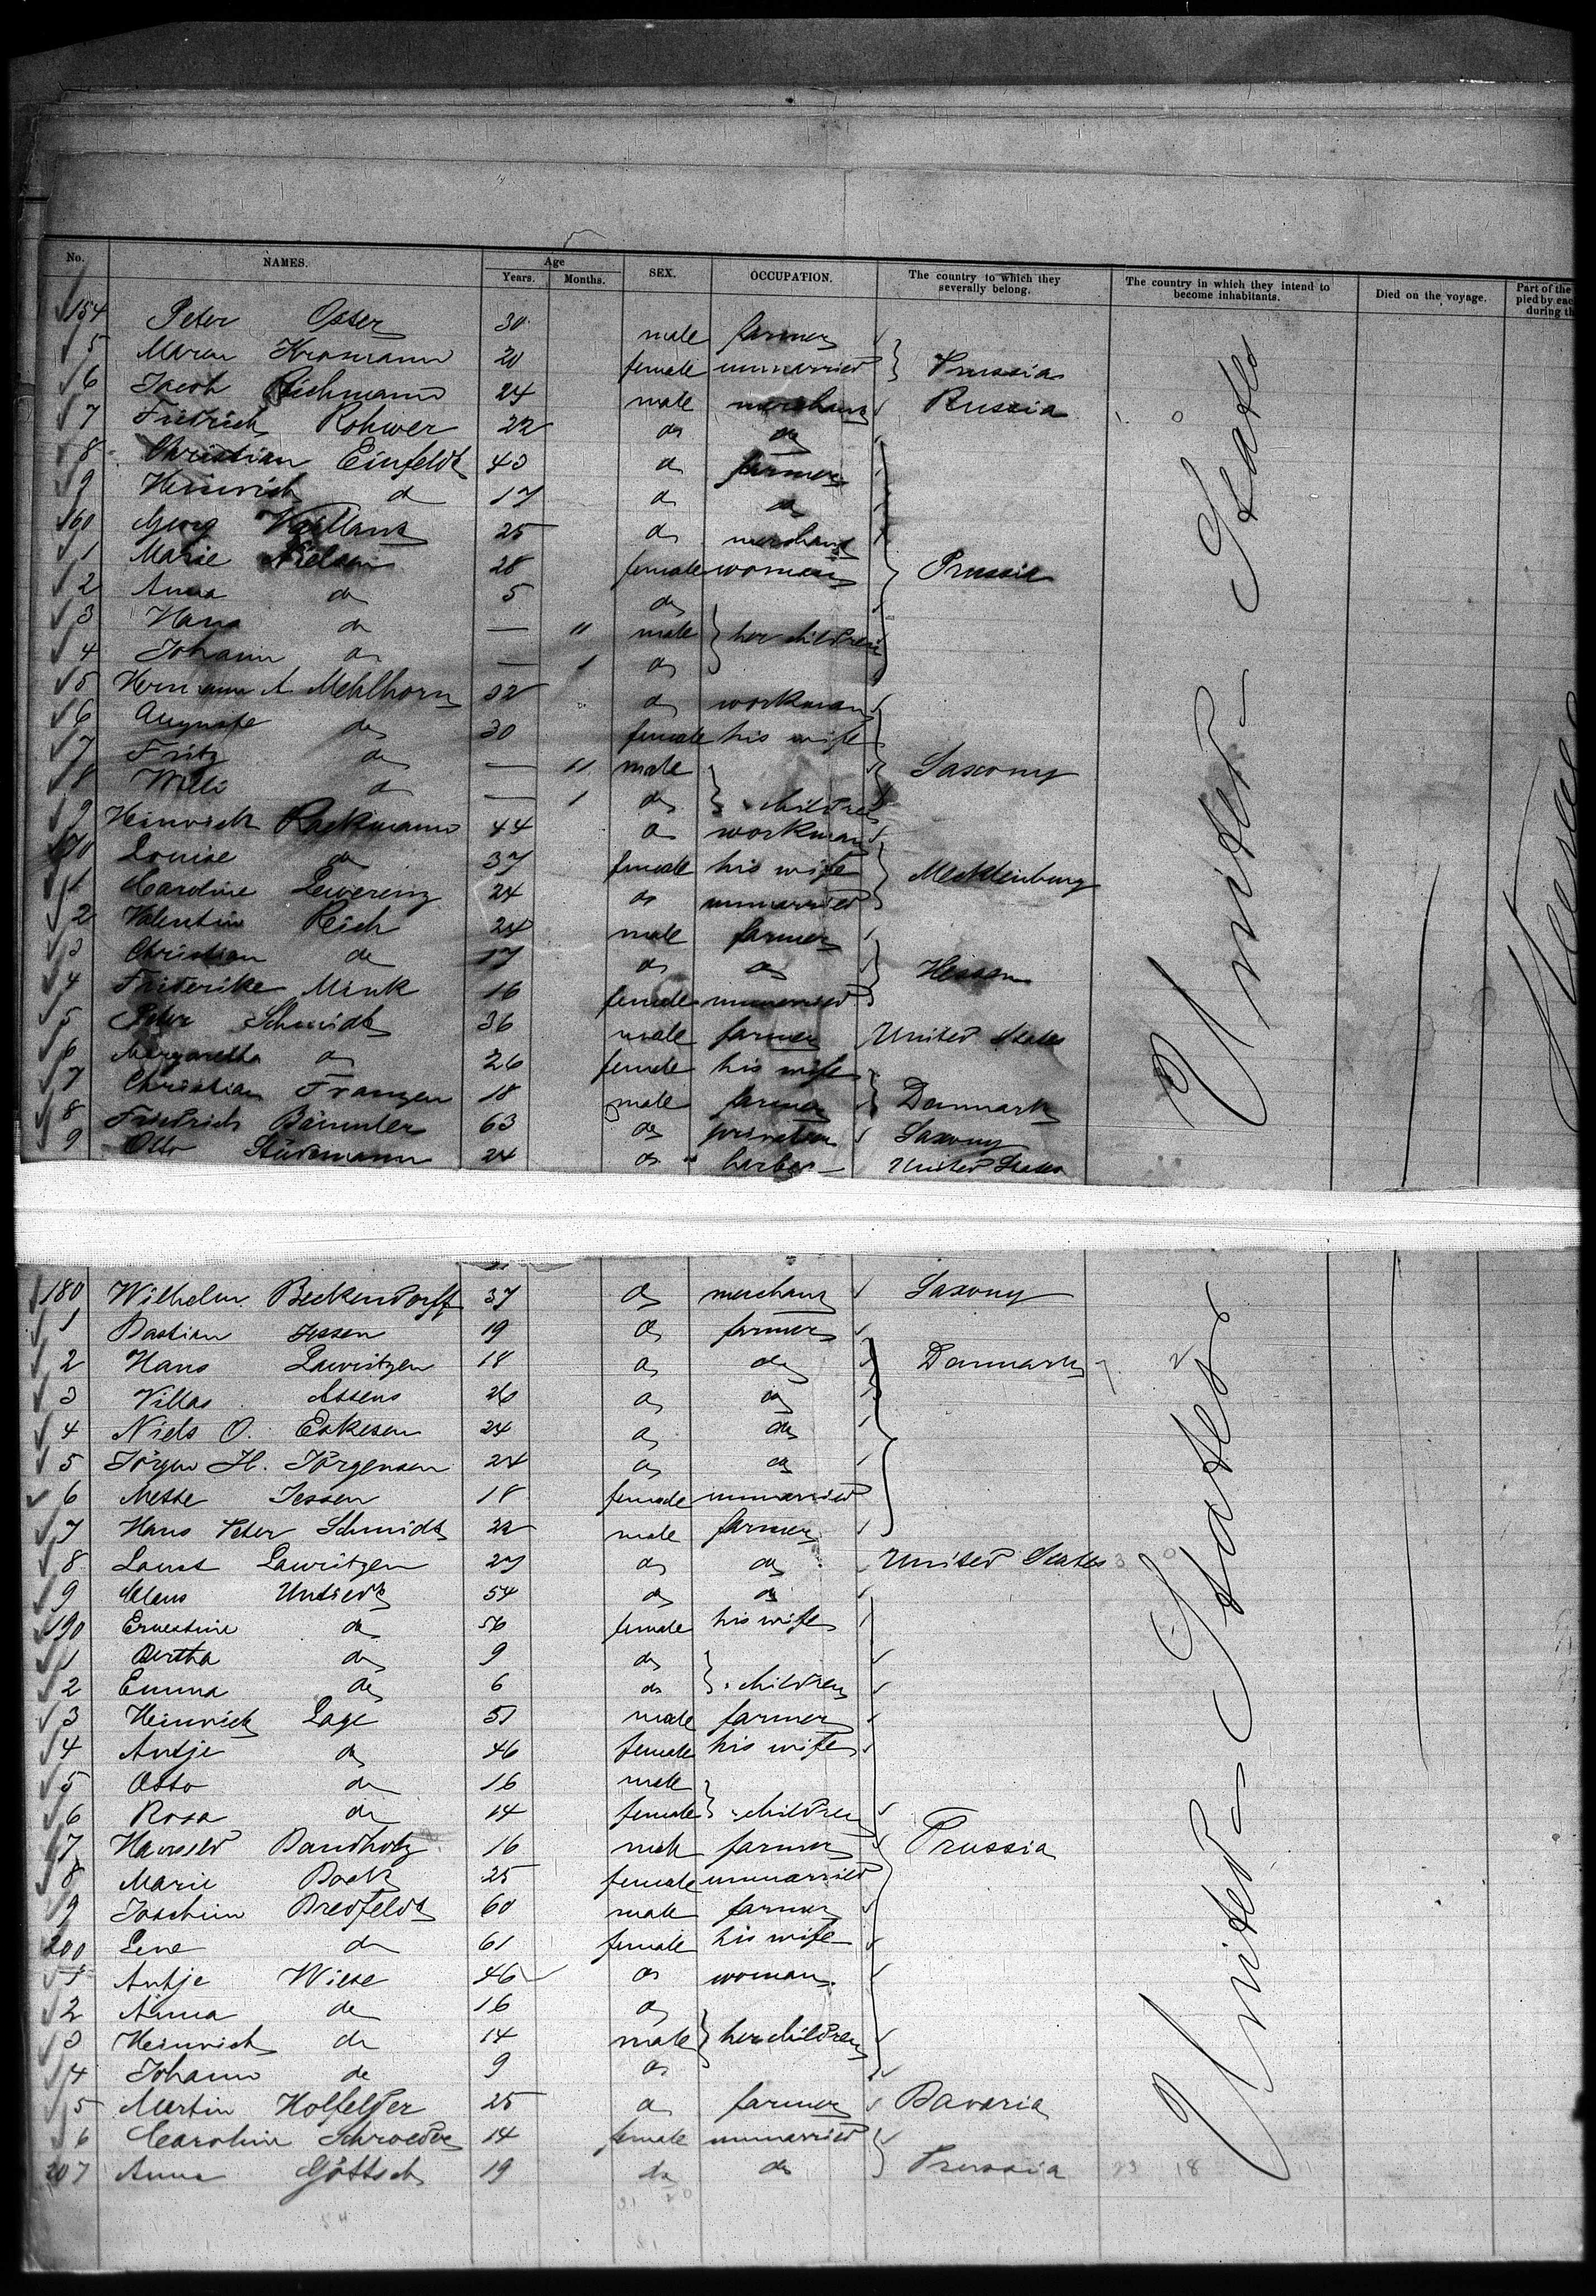 No. NAMES. Age Years. Months. SEX. OCCUPATION. The country to which they severally belong. The country in which they intend to become inhabitants. Died on the voyage. Part of the pied by eac during th
154 Peter Oster 30 male farmer
5 Maren 20 female unmarried Prussia
6 Jacob Richmann 24 male merchant Russia
7 Friedrich Rohwer 22 do do
8 Christian Einfeldt 43 do farmer
9 Heinrich do 17 do do
60 Georg Vaillant 25 do merchant
1 Marie Nielsen 28 female woman Prussia
2 Anna do 5 do
3 Hans do — 11 male her children
4 Johann do — 1 do
5 Hermann A Mehlhorn 32 do workman
6 Auguste do 30 female his wife
7 Fritz do — 11 male Saxony
8 Willi do — 1 do children
9 Heinrich Rackmann 44 do workman
170 Louise do 37 female his wife Mecklenburg
1 Caroline Lewerenz 24 do unmarried
2 Valentin Reich 24 male farmer
3 Christian do 17 do do Hessen
4 Friderike Mink 16 female unmarried
5 Peter Schmidt 36 male farmer United States
6 Margaretha do 26 female his wife
7 Christian Franzen 18 male farmer Danmark
8 Friedrich Bämmler 63 do Saxony
9 Otto Stüdemann 24 do barber United States
180 Wilhelm Beckendorff 37 do merchant Saxony
1 Bastian Jessen 19 do farmer
2 Hans Lauritzen 18 do do Danmark
3 Villas Assens 26 do do
4 Niels O. Eskesen 24 do do
5 Jörgen H. Jörgensen 24 do do
6 Mette Jessen 18 female unmarried
7 Hans Peter Schmidt 22 male farmer
8 Laust Lauritzen 27 do do United States
9 Claus Untiedt 54 do do
190 Ernestine do 56 female his wife
1 Bertha do 9 do
2 Emma do 6 do children
3 Heinrich Lage 51 male farmer
4 Antje do 46 female his wife
5 Otto do 16 male
6 Rosa do 14 female children
7 Bandholz 16 male farmer Prussia
8 Marie Bock 25 female unmarried
9 Joachim Bredfeldt 60 male farmer
200 Lene do 61 female his wife
1 Antje Wiese 46 do woman
2 Anna do 16 do
3 Heinrich do 14 male her children
4 Johann do 9 do
5 Martin Holfelder 25 do farmer Bavaria
6 Caroline Schroeder 14 female unmarried
207 Anna Göttsch 19 do do Prussia
United States
United States